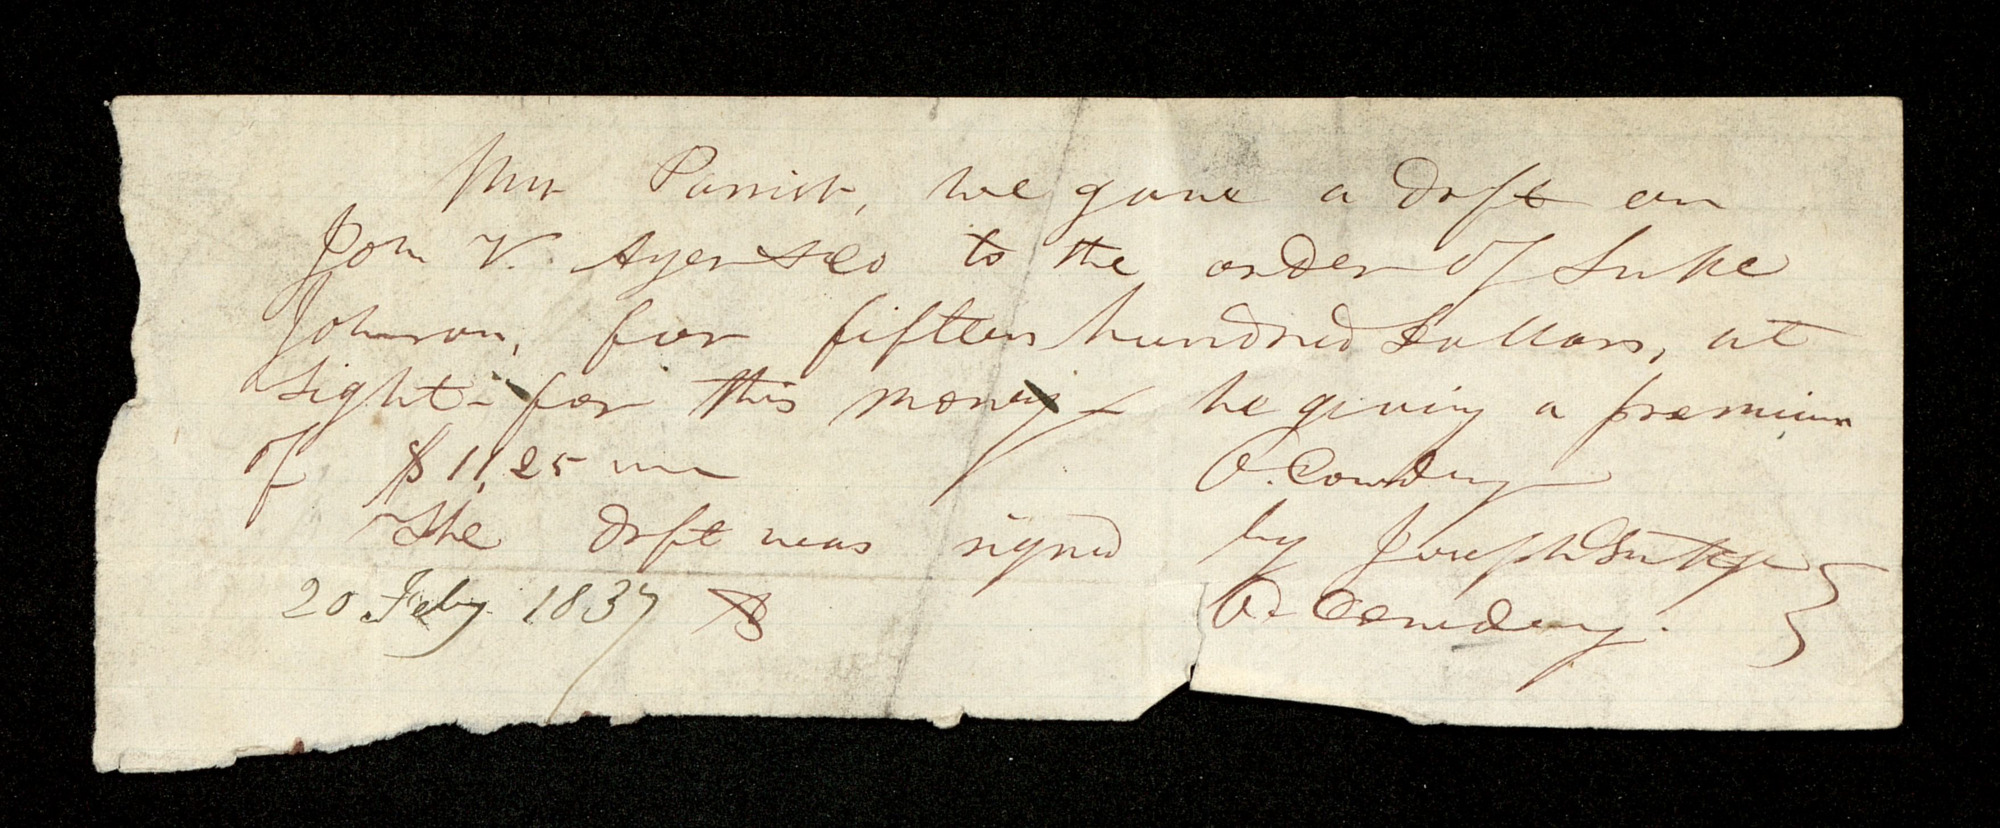 Mr Parrish, we gave a drft on
John V. Ayer & Co to the order of Luke
Johnson, for fifteen hundred dollars, at
sight - for this money - he giving a premium
of $11,25
O. Cowdery
The drft was signed by Joseph Smith
O. Cowdery.
20 Feby. 1837